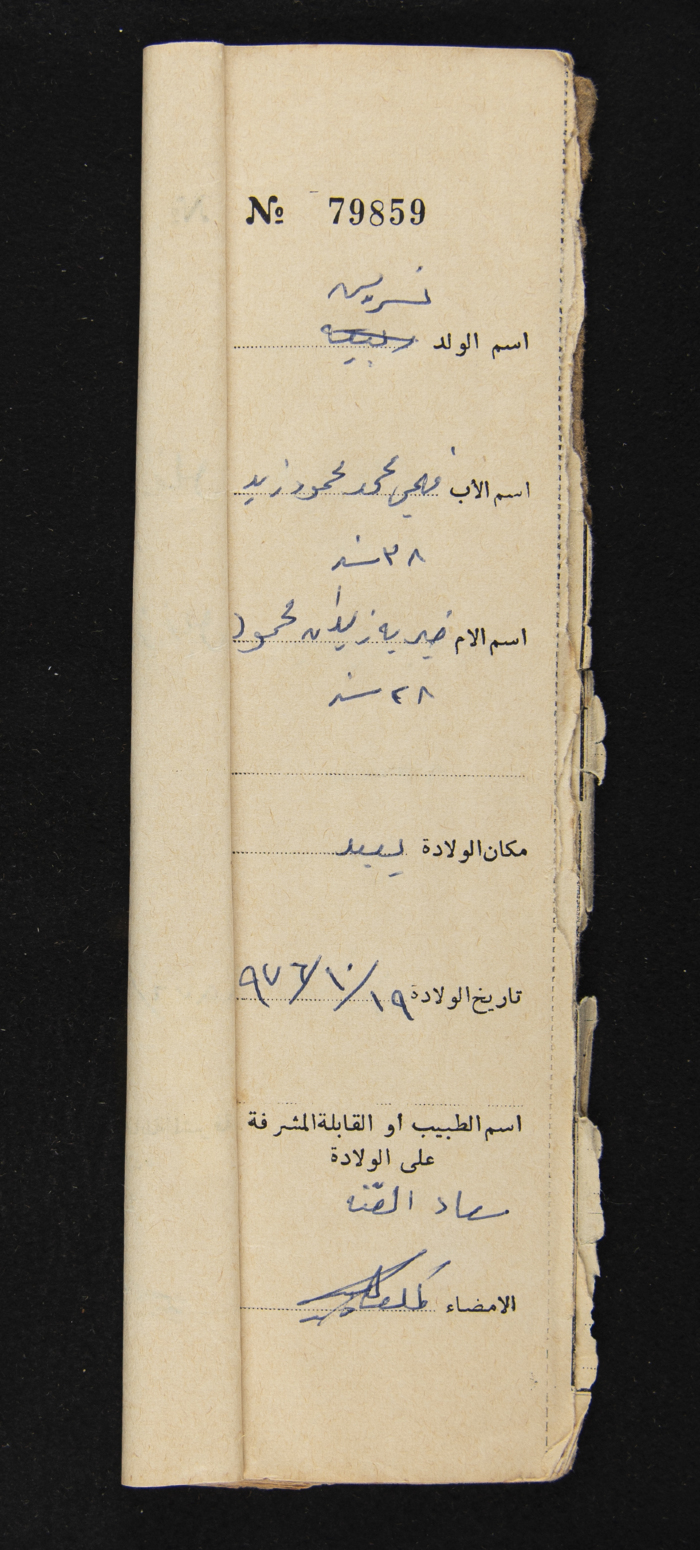 № 79859
نسرين
اسم الولد
اسم الأب فهمي محمد محمود زيد
٣٨ سنه
اسم الام خيريه زيدان محمود
٢٨ سنه
مكان الولادة يعبد
تاريخ الولادة ١٩/١٠/٩٧٦
اسم الطبيب أو القابلة المشرفة
على الولادة
سعاد
الامضاء